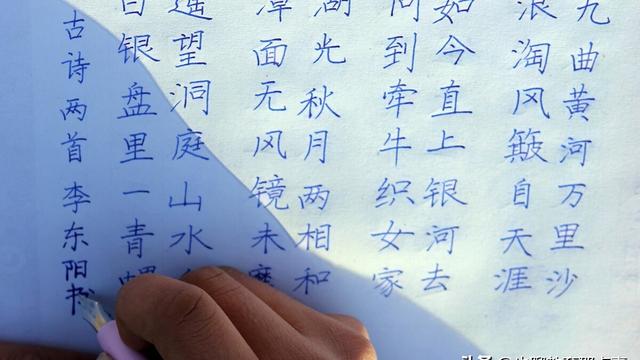 九曲黄河万里沙
浪淘风簸自天涯
如今直上银河去
同到牵牛织女家
湖光秋月两相和
潭面无风镜未磨
遥望洞庭山水
白银盘里一青螺
古诗两首 李东阳书